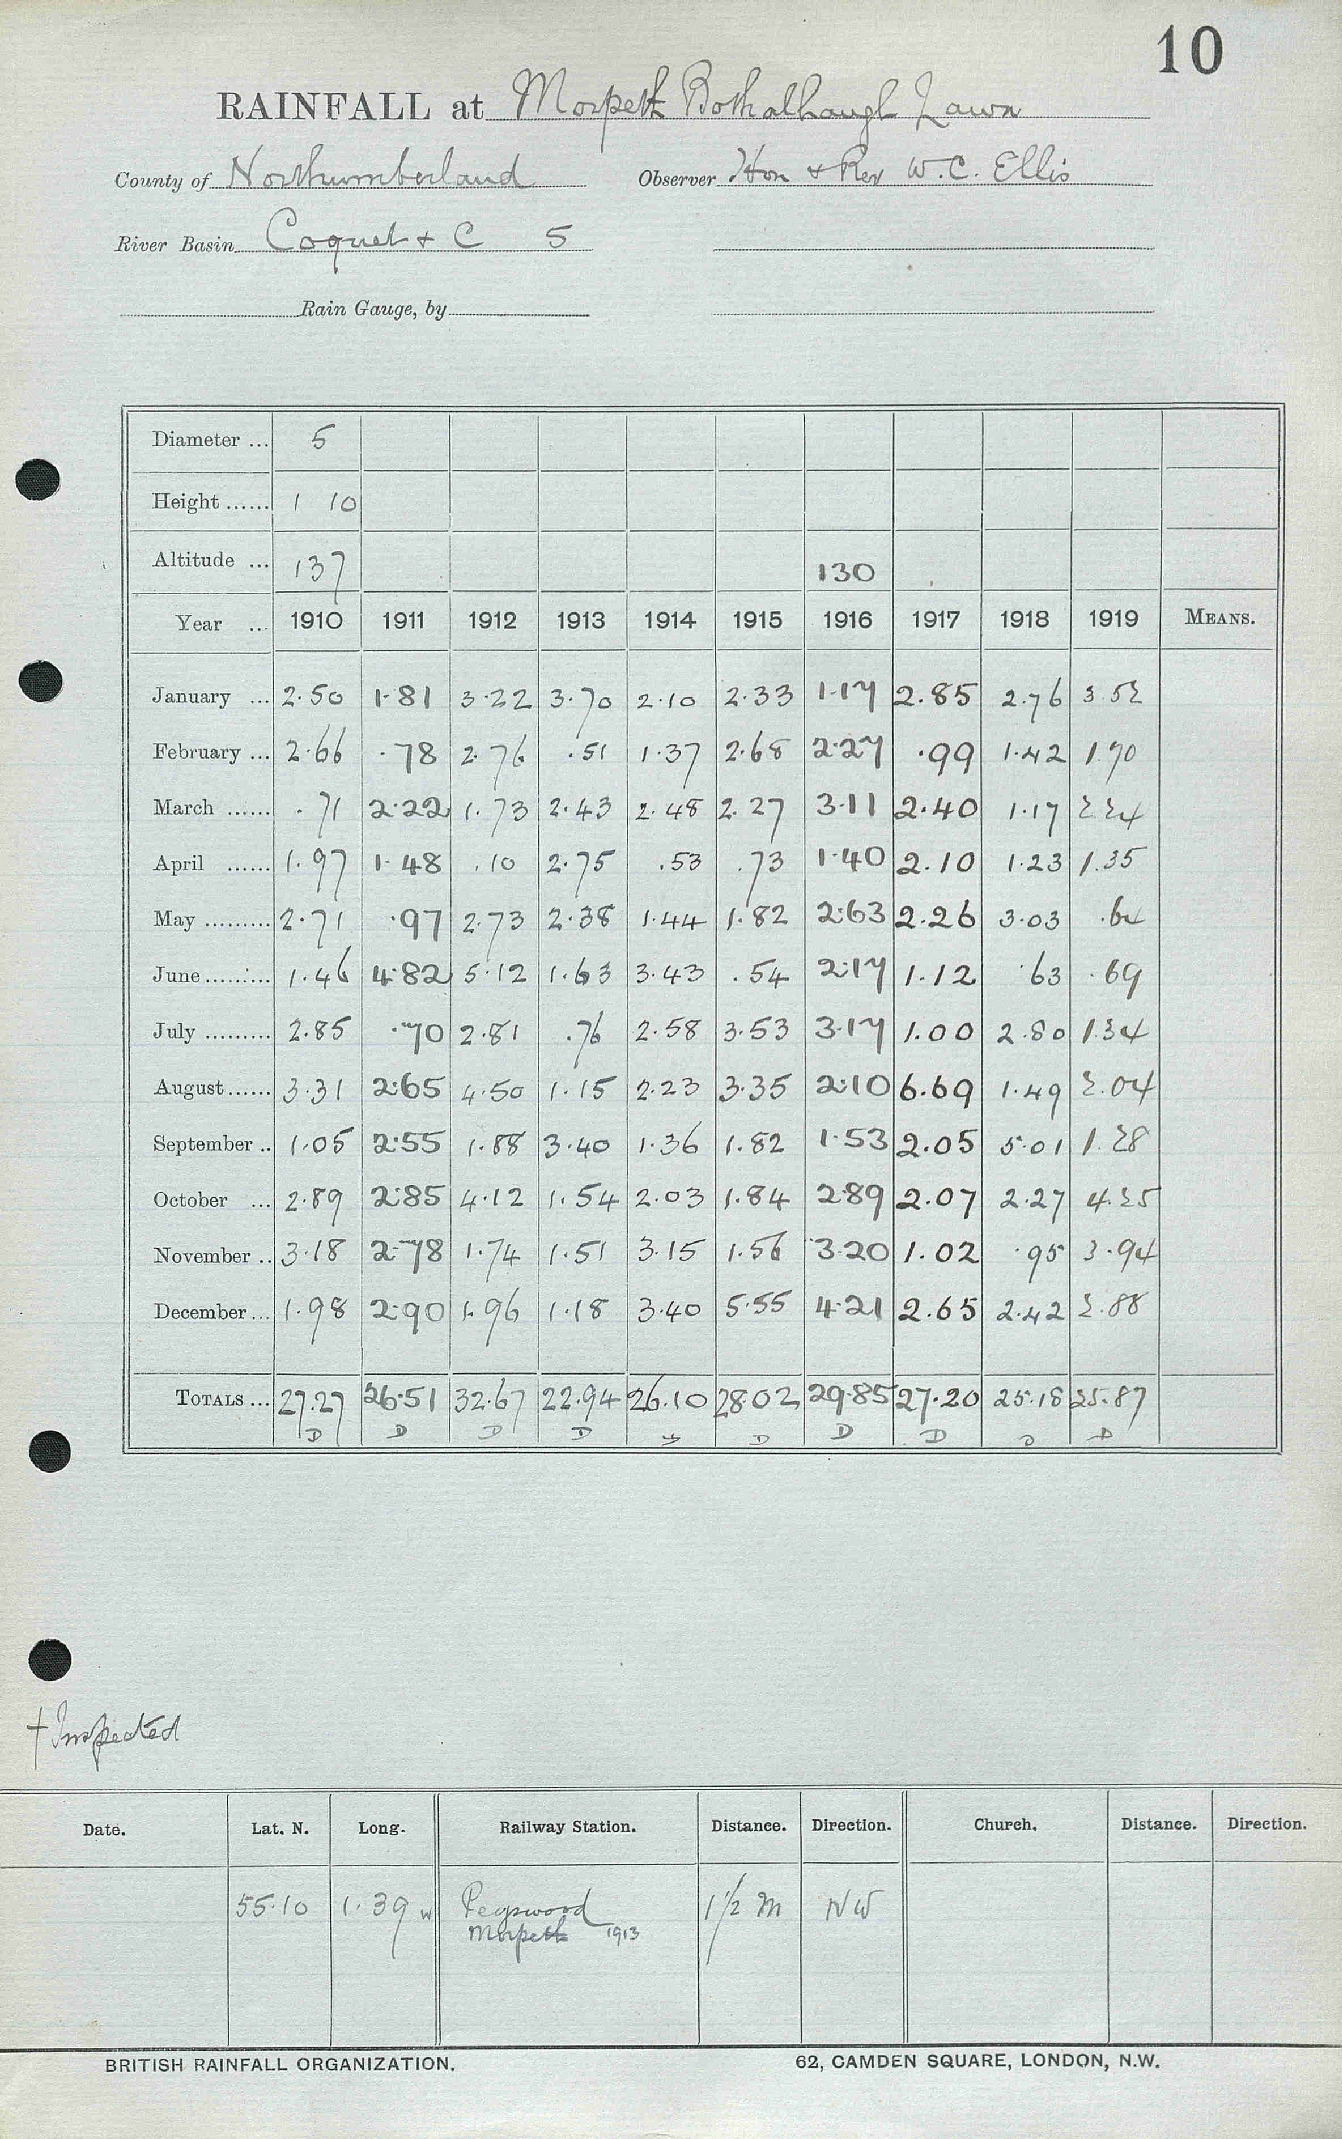 10
RAINFALL at Morpeth Bothalhaugh Lawn
County of Northumberland Observer Hon & Rev W.C. Ellis
River Basin Coquet & C 5
Rain Gauge, by
Diameter ... 5
Height ...... 1 10
Altitude ... 137 130
Year ... 1910 1911 1912 1913 1914 1915 1916 1917 1918 1919 MEANS.
January ... 2.50 1.81 3.22 3.70 2.10 2.33 1.17 2.85 2.76 3.52
February ... 2.66 .78 2.76 .51 1.37 2.68 2.27 .99 1.42 1.70
March ...... .71 2.22 1.73 2.43 2.48 2.27 3.11 2.40 1.17 2.24
April ...... 1.97 1.48 .10 2.75 .53 .73 1.40 2.10 1.23 1.35
May ......... 2.71 .97 2.73 2.38 1.44 1.82 2.63 2.26 3.03 .64
June ......... 1.46 4.82 5.12 1.63 3.43 .54 2.17 1.12 .63 .69
July ......... 2.85 .70 2.81 .76 2.58 3.53 3.17 1.00 2.80 1.34
August ...... 3.31 2.65 4.50 1.15 2.23 3.35 2.10 6.69 1.49 2.04
September .. 1.05 2.55 1.88 3.40 1.36 1.82 1.53 2.05 5.01 1.28
October ... 2.89 2.85 4.12 1.54 2.03 1.84 2.89 2.07 2.27 4.25
November .. 3.18 2.78 1.74 1.51 3.15 1.56 3.20 1.02 .95 3.94
December ... 1.98 2.90 1.96 1.18 3.40 5.55 4.21 2.65 2.42 2.88
TOTALS ... 27.27 26.51 32.67 22.94 26.10 28.02 29.85 27.20 25.18 25.87
D D D D D D D D D
† Inspected
Date. Lat. N. Long. Railway Station. Distance. Direction. Church. Distance. Direction.
55.10 1.39 W Pegswood 1½ m NW
Morpeth 1913
BRITISH RAINFALL ORGANIZATION. 62, CAMDEN SQUARE, LONDON, N.W.